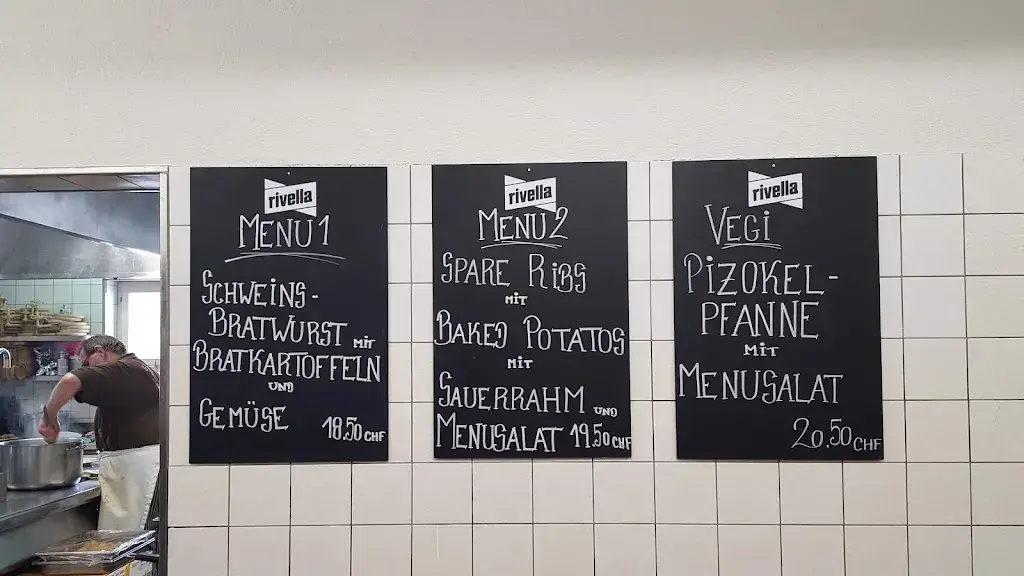 rivella
MENU 1
SCHWEINS-
BRATWURST MIT
BRATKARTOFFELN
UND
GEMÜSE 18.50 CHF
rivella
MENU 2
SPARE RIBS
MIT
BAKED POTATOS
MIT
SAUERRAHM UND
MENUSALAT 19.50 CHF
rivella
VEGI
PIZOKEL-
PFANNE
MIT
MENUSALAT
20.50 CHF